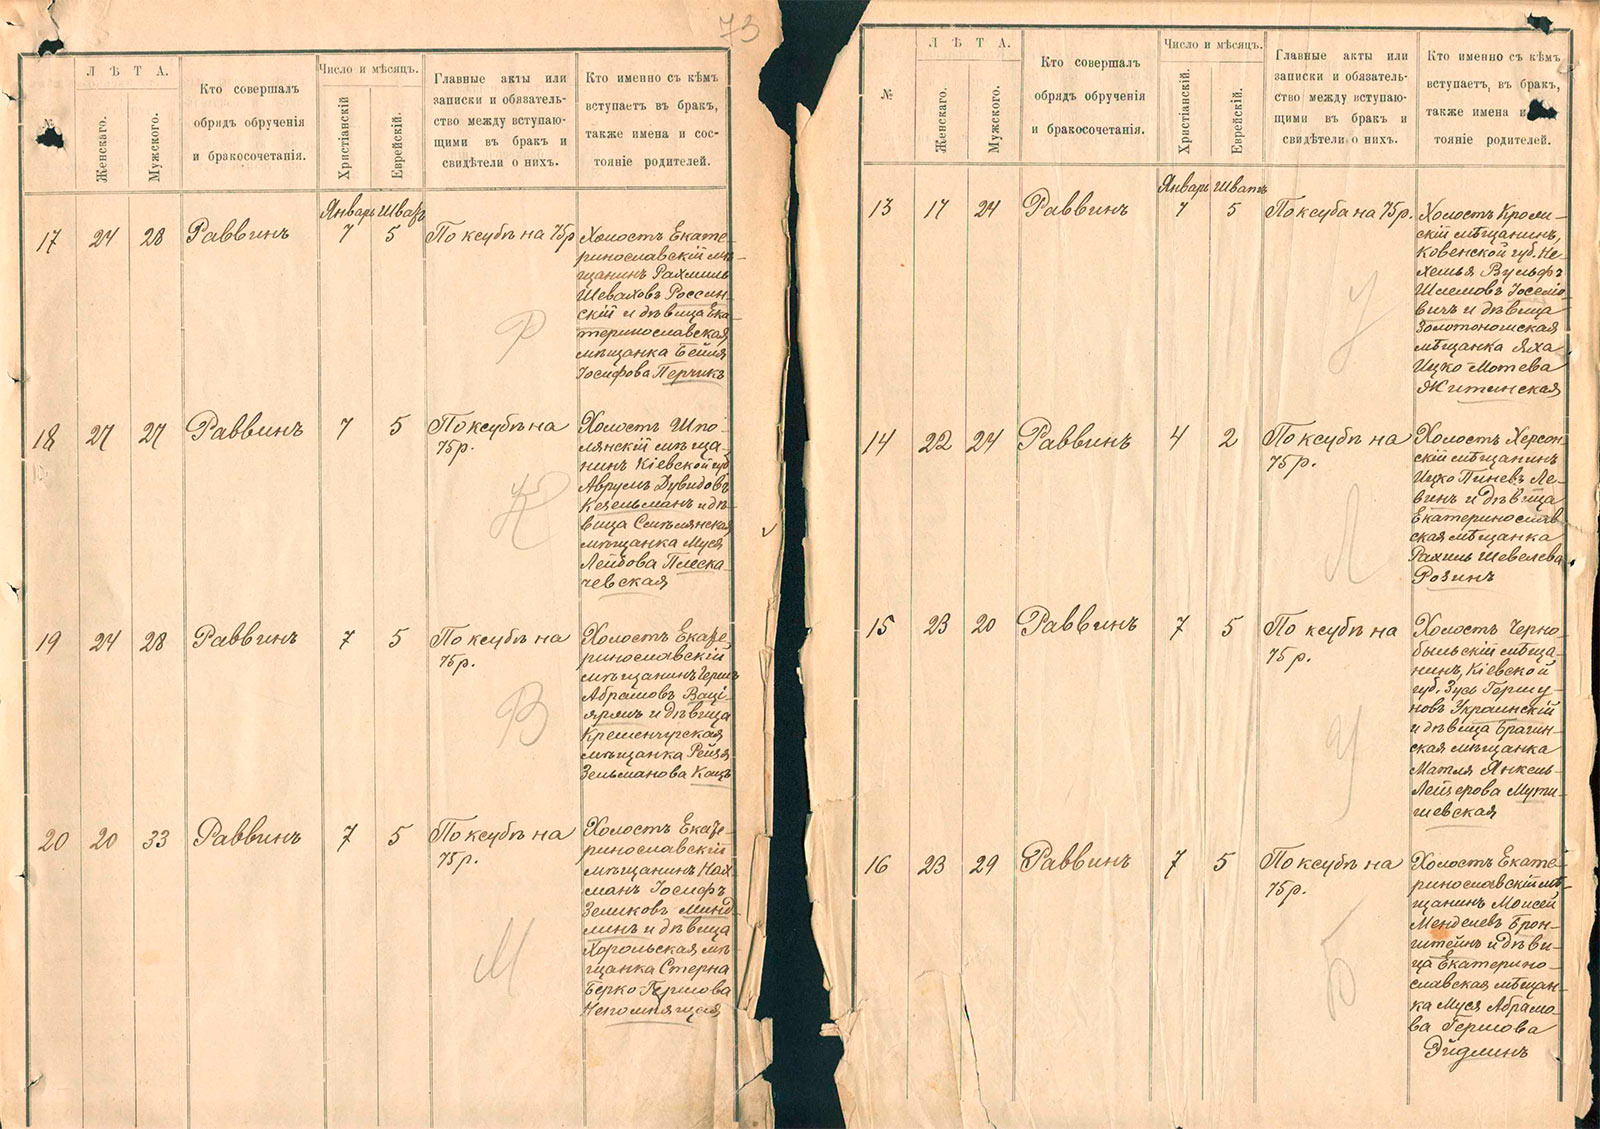 73
№
ЛѢТА.
Женскаго.
Мужского.
Кто совершалъ
обрядъ обрученія
и бракосочетанія.
Число и мѣсяцъ.
Христіанскій
Еврейскій.
Главные акты или
записки и обязатель-
ство между вступаю-
щими въ бракъ и
свидѣтели о нихъ.
Кто именно съ кѣмъ
вступаетъ въ бракъ,
также имена и сос-
тояніе родителей.
Январь Шватъ
17 24 28 Раввинъ 7 5 По ксубѣ на 75р
Холостъ Екате-
ринославскій мѣ-
щанинъ Рахмиль
Шеваховъ Россин-
скій и дѣвица Ека-
теринославская
мѣщанка Бейля
Іосифова Перчикъ
Р
18 27 27 Раввинъ 7 5 По ксубѣ на
75р.
Холостъ Шпо-
лянскій мѣща-
нинъ Кіевской губ
Аврумъ Дувидовъ
Кезельманъ и дѣ-
вица Смѣлянская
мѣщанка Муся
Лейбова Плеска-
чевская
К
19 24 28 Раввинъ 7 5 По ксубѣ на
75р.
Холостъ Екате-
ринославскій
мѣщанинъ Герш
Абрамовъ Ваці-
ярмъ и дѣвица
Кременчугская
мѣщанка Рейзя
Зельманова Кацъ
В
20 20 33 Раввинъ 7 5 По ксубѣ на
75р.
Холостъ Екате-
ринославскій
мѣщанинъ Нах-
манъ Іосифъ
Зеликовъ Минд-
линъ и дѣвица
Хорольская мѣ-
щанка Стерна
Берко-Гершова
Непомнящая
М
№
ЛѢТА.
Женскаго.
Мужского.
Кто совершалъ
обрядъ обрученія
и бракосочетанія.
Число и мѣсяцъ.
Христіанскій.
Еврейскій.
Главные акты или
записки и обязатель-
ство между вступаю-
щими въ бракъ и
свидѣтели о нихъ.
Кто именно съ кѣмъ
вступаетъ, въ бракъ,
также имена и
тояніе родителей.
Январь Шватъ
13 17 24 Раввинъ 7 5 По ксуба на 75р.
Холостъ Кроли-
скій мѣщанинъ,
Ковенской губ. Не-
хемья Вульфъ
Шлемовъ Іоселіо-
вичъ и дѣвица
Золотоношская
мѣщанка Хая
Ицко-Мотева
Житинская
У
14 22 24 Раввинъ 4 2 По ксубѣ на
75р.
Холостъ Херсон
скій мѣщанинъ
Ицко Пиневъ Ле-
винъ и дѣвица
Екатеринослав
ская мѣщанка
Рахиль Шевелева
Розинъ
Л
15 23 20 Раввинъ 7 5 По ксубѣ на
75р.
Холостъ Черно-
быльскій мѣща-
нинъ, Кіевской
губ. Зусь Гершу-
новъ Украинскій
и дѣвица Брагин-
ская мѣщанка
Матля Янкель-
Лейзерова Мути-
шевская
У
16 23 29 Раввинъ 7 5 По ксубѣ на
75р.
Холостъ Екате-
ринославскій мѣ-
щанинъ Моисей
Менделевъ Брон-
штейнъ и дѣви-
ца Екатерино-
славская мѣщан-
ка Муся Абрамо-
ва Гершова
Эйдлинъ
Б